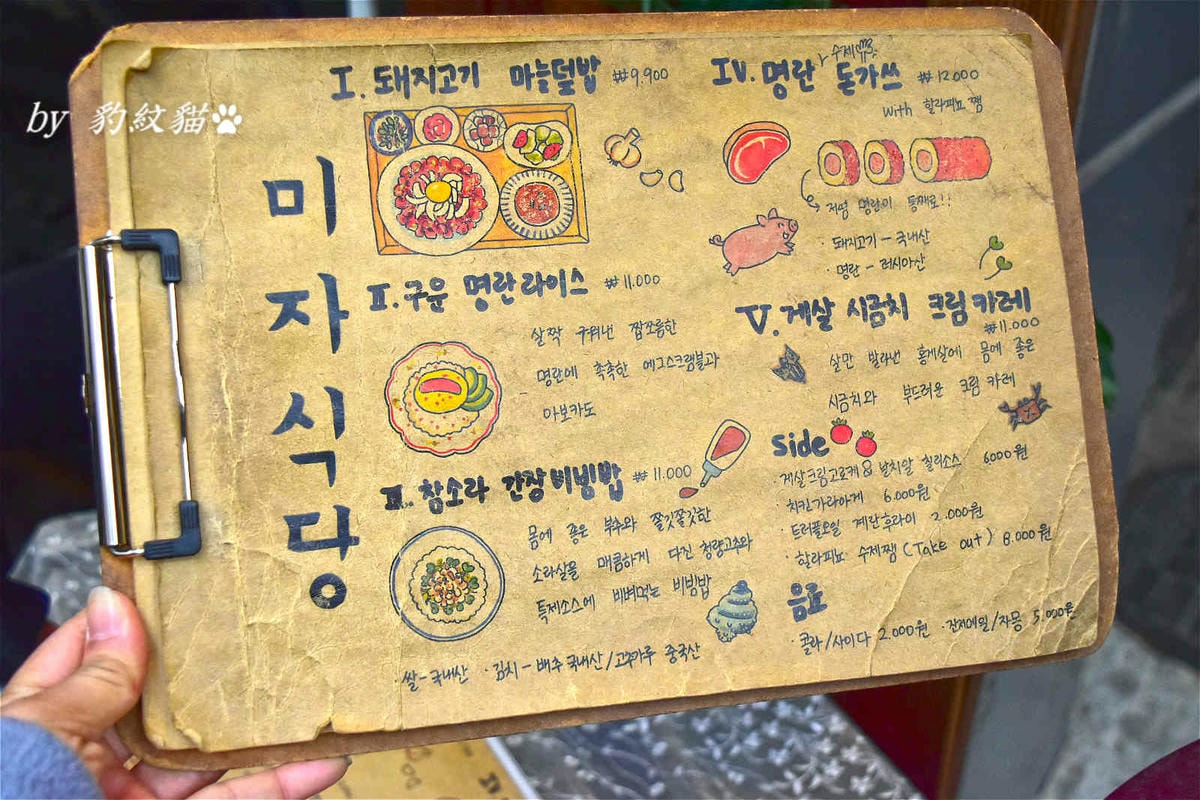 by 豹紋貓
미자식당
I. 돼지고기 마늘덮밥 ₩9,900
II. 구운 명란라이스 ₩11.000
살짝 구워낸 짭쪼름한
명란에 촉촉한 에그스크램블과
아보카도
III. 참소라 간장비빔밥 ₩11.000
몸에 좋은 부추와 쫄깃쫄깃한
소라살을 매콤하게 다진 청량고추와
특제소스에 비벼먹는 비빔밥
·쌀-국내산 ·김치-배추국내산/고추가루 중국산
IV. 명란 수제 돈가쓰 ₩12000
with 할라피뇨 쨈
저염 명란이 통째로!!
·돼지고기-국내산
·명란-러시아산
V. 게살 시금치 크림카레
₩11.000
살만 발라낸 홍게살에 몸에 좋은
시금치와 부드러운 크림 카레
side
·게살크림고로케 & 날치알 칠리소스 6000원
·치킨가라아게 6.000원
·트러플오일 계란후라이 2.000원
·할라피뇨 수제쨈(Take out) 8.000원
음료
·콜라/사이다 2.000원 ·진저에일/자몽 5.000원